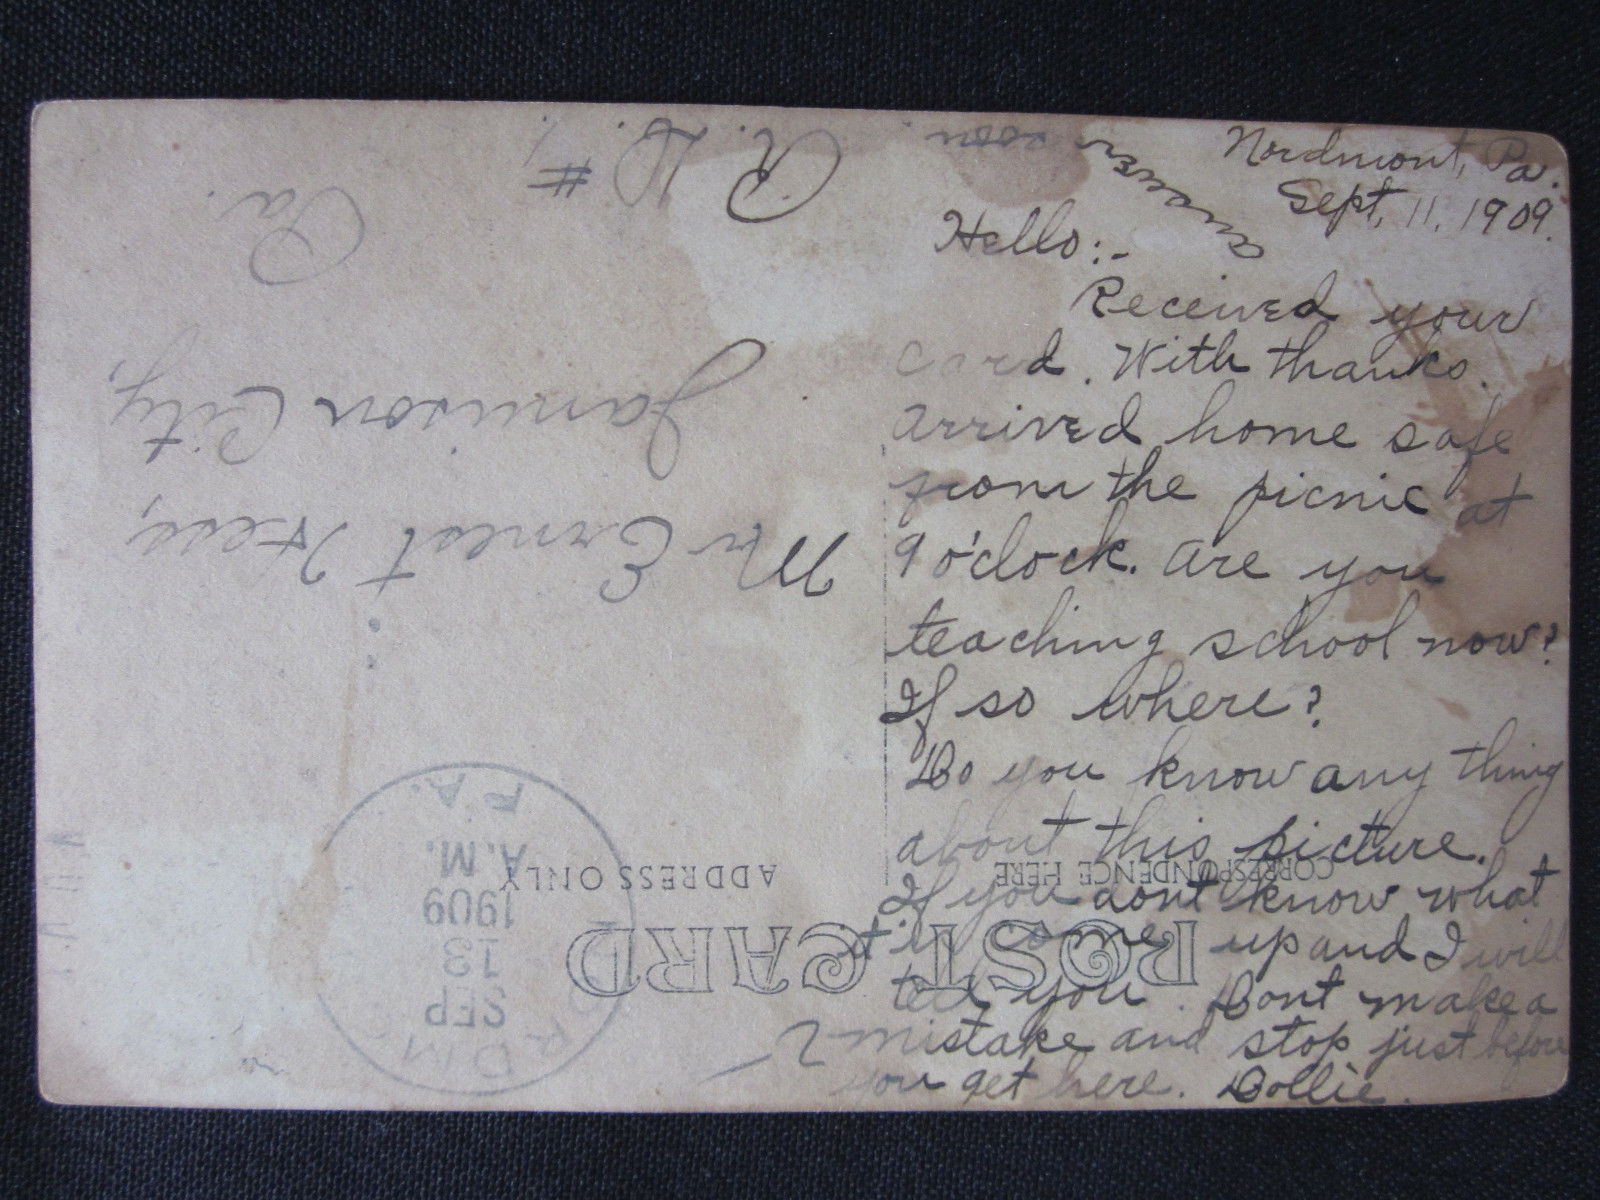 Nordmont, Pa.
Sept. 11, 1909.
Hello:-
Received your
card. With thanks.
arrived home safe
from the picnic at
9 o'clock. are you
teaching school now?
If so where?
Do you know any thing
about this picture.
If you dont know what
it is come up and I will
tell you. Dont make a
mistake and stop just before
you get here. Dollie.
answer soon.
POST CARD
CORRESPONDENCE HERE
ADDRESS ONLY
SEP
13
1909
A.M.
PA.
Mr Ernest Hess,
Jamison City,
Pa.
R. D. #1.